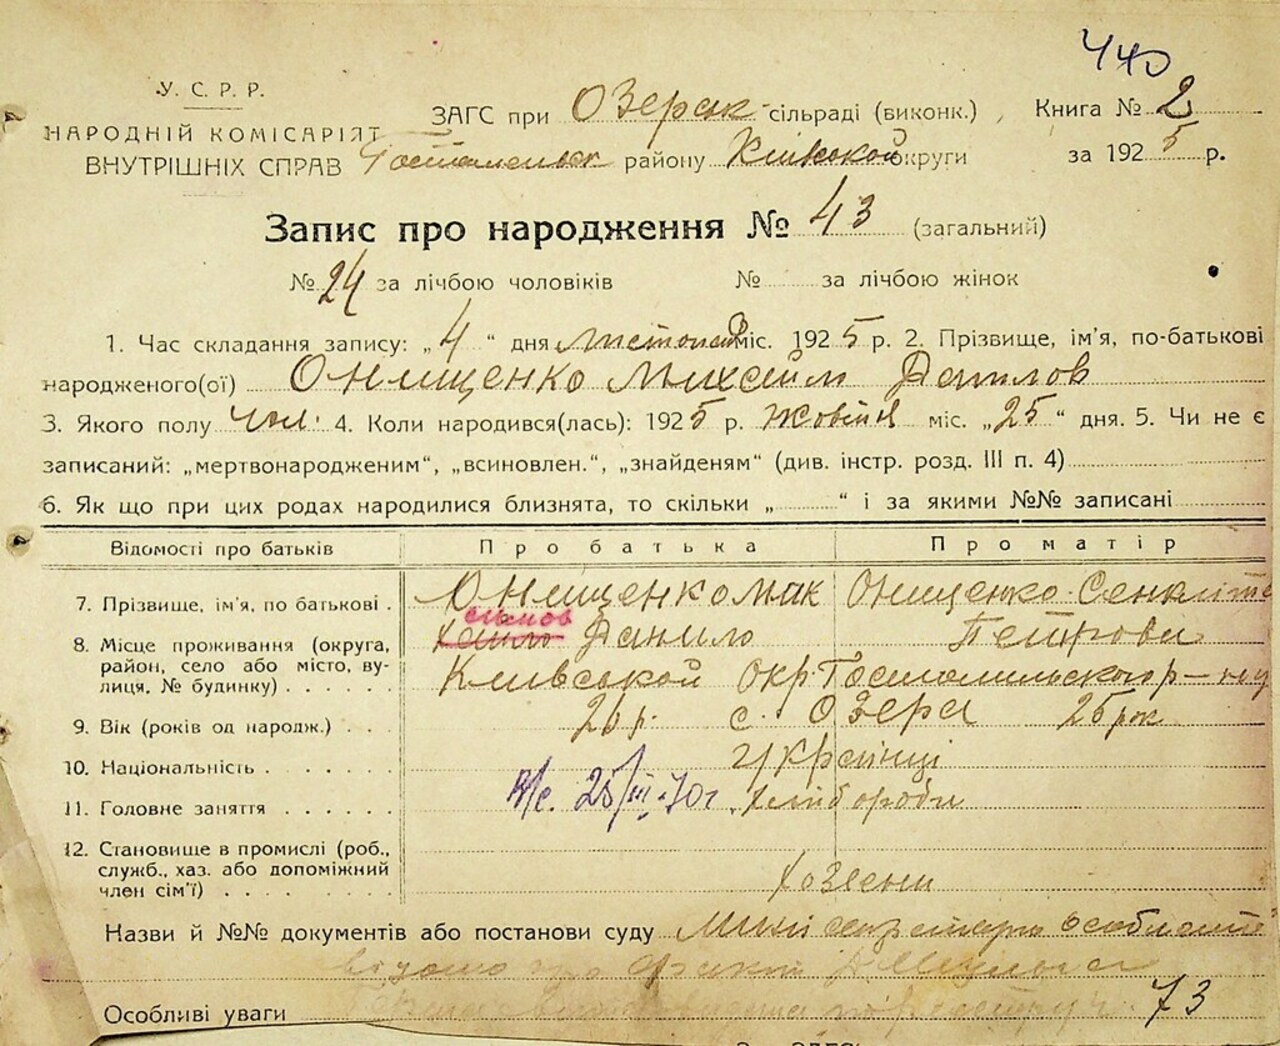 440
У. С. Р. Р.
НАРОДНІЙ КОМІСАРІЯТ
ВНУТРІШНІХ СПРАВ
ЗАГС при Озерск сільраді (виконк.) Книга № 2
Гостомельск району Київської округи за 1925 р.
Запис про народження № 43 (загальний)
№ 24 за лічбою чоловіків № за лічбою жінок
1. Час складання запису: „4“ дня листопад міс. 1925 р. 2. Прізвище, ім’я, по-батькові
народженого(ої) Онищенко Михайло Данилов
3. Якого полу чол. 4. Коли народився(лась): 1925 р. жовтня міс. „25“ дня. 5. Чи не є
записаний: „мертвонародженим“, „всиновлен.“, „знайденям“ (див. інстр. розд. III п. 4)
6. Як що при цих родах народилися близнята, то скільки „ “ і за якими №№ записані
Відомості про батьків Про батька Про матір
7. Прізвище, ім’я, по батькові . Онищенко Мак Онищенко
симов
Данило Петрови
8. Місце проживання (округа,
район, село або місто, ву-
лиця, № будинку) . . . . . . Київської Окр.
9. Вік (років од народж.) . . . 26 р. с. Озера 25 рок
10. Національність . . . . . . . Українці
11. Головне заняття . . . . . . 25/III-70 г. хлібороби
12. Становище в промислі (роб.,
служб., хаз. або допоміжний
член сім’ї) . . . . . . . . . хозяени
Назви й №№ документів або постанови суду
відомо про
Особливі уваги 73